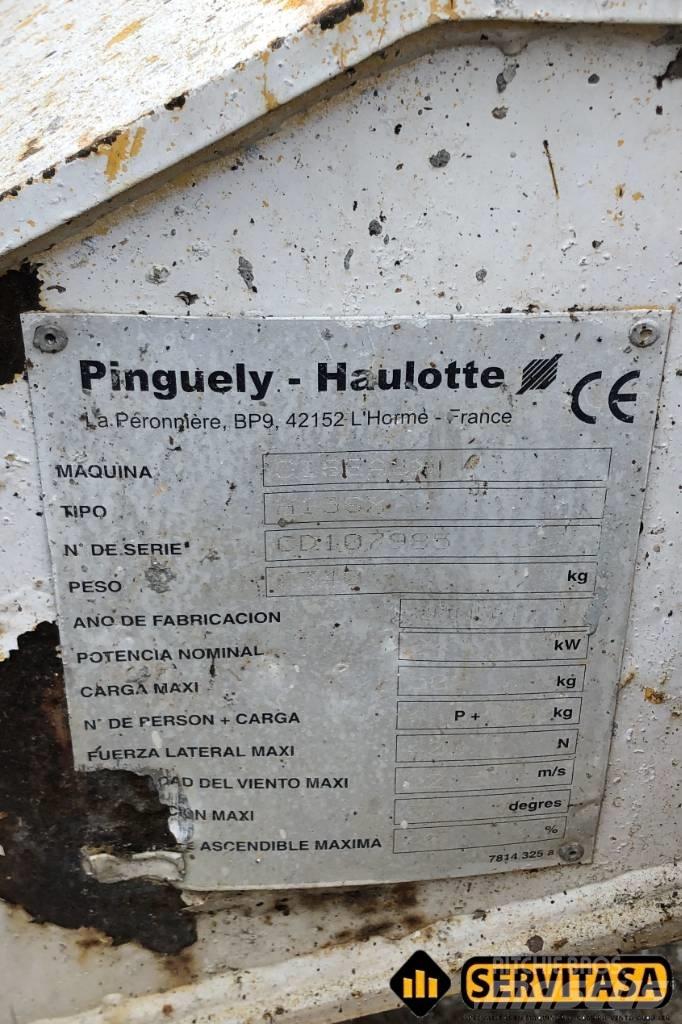 Pinguely - Haulotte
CE
La Péronnière, BP9, 42152 L'Horme - France
MAQUINA
TIPO
N° DE SERIE CD107985
PESO kg
ANO DE FABRICACION
POTENCIA NOMINAL kW
CARGA MAXI kg
N° DE PERSON + CARGA P + kg
FUERZA LATERAL MAXI N
DEL VIENTO MAXI m/s
MAXI degres
ASCENDIBLE MAXIMA %
7814 325 a
SERVITASA